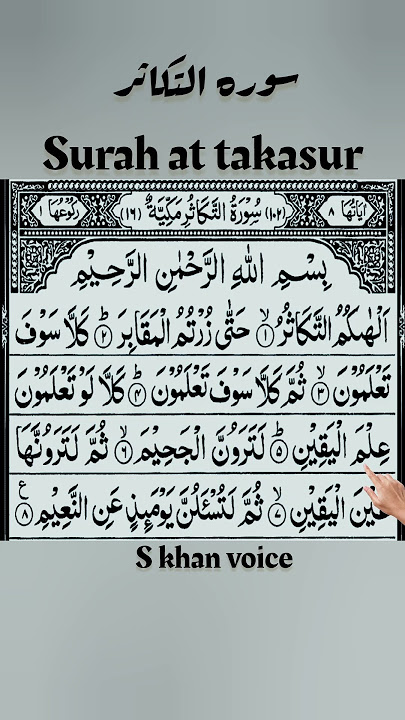 سورہ التکاثر
Surah at takasur
اٰيَاتُهَا ٨ (١٠٢) سُوْرَةُ التَّكَاثُرِ مَكِّيَّةٌ (١٦) رُكُوْعُهَا ١
بِسْمِ اللهِ الرَّحْمٰنِ الرَّحِيْمِ
اَلْهٰىكُمُ التَّكَاثُرُ ۙ﴿١﴾ حَتّٰى زُرْتُمُ الْمَقَابِرَ ؕ﴿٢﴾ كَلَّا سَوْفَ
تَعْلَمُوْنَ ۙ﴿٣﴾ ثُمَّ كَلَّا سَوْفَ تَعْلَمُوْنَ ؕ﴿٤﴾ كَلَّا لَوْ تَعْلَمُوْنَ
عِلْمَ الْيَقِيْنِ ؕ﴿٥﴾ لَتَرَوُنَّ الْجَحِيْمَ ۙ﴿٦﴾ ثُمَّ لَتَرَوُنَّهَا
عَيْنَ الْيَقِيْنِ ۙ﴿٧﴾ ثُمَّ لَتُسْـَٔلُنَّ يَوْمَىِٕذٍ عَنِ النَّعِيْمِ ﴿٨﴾ ع
S khan voice